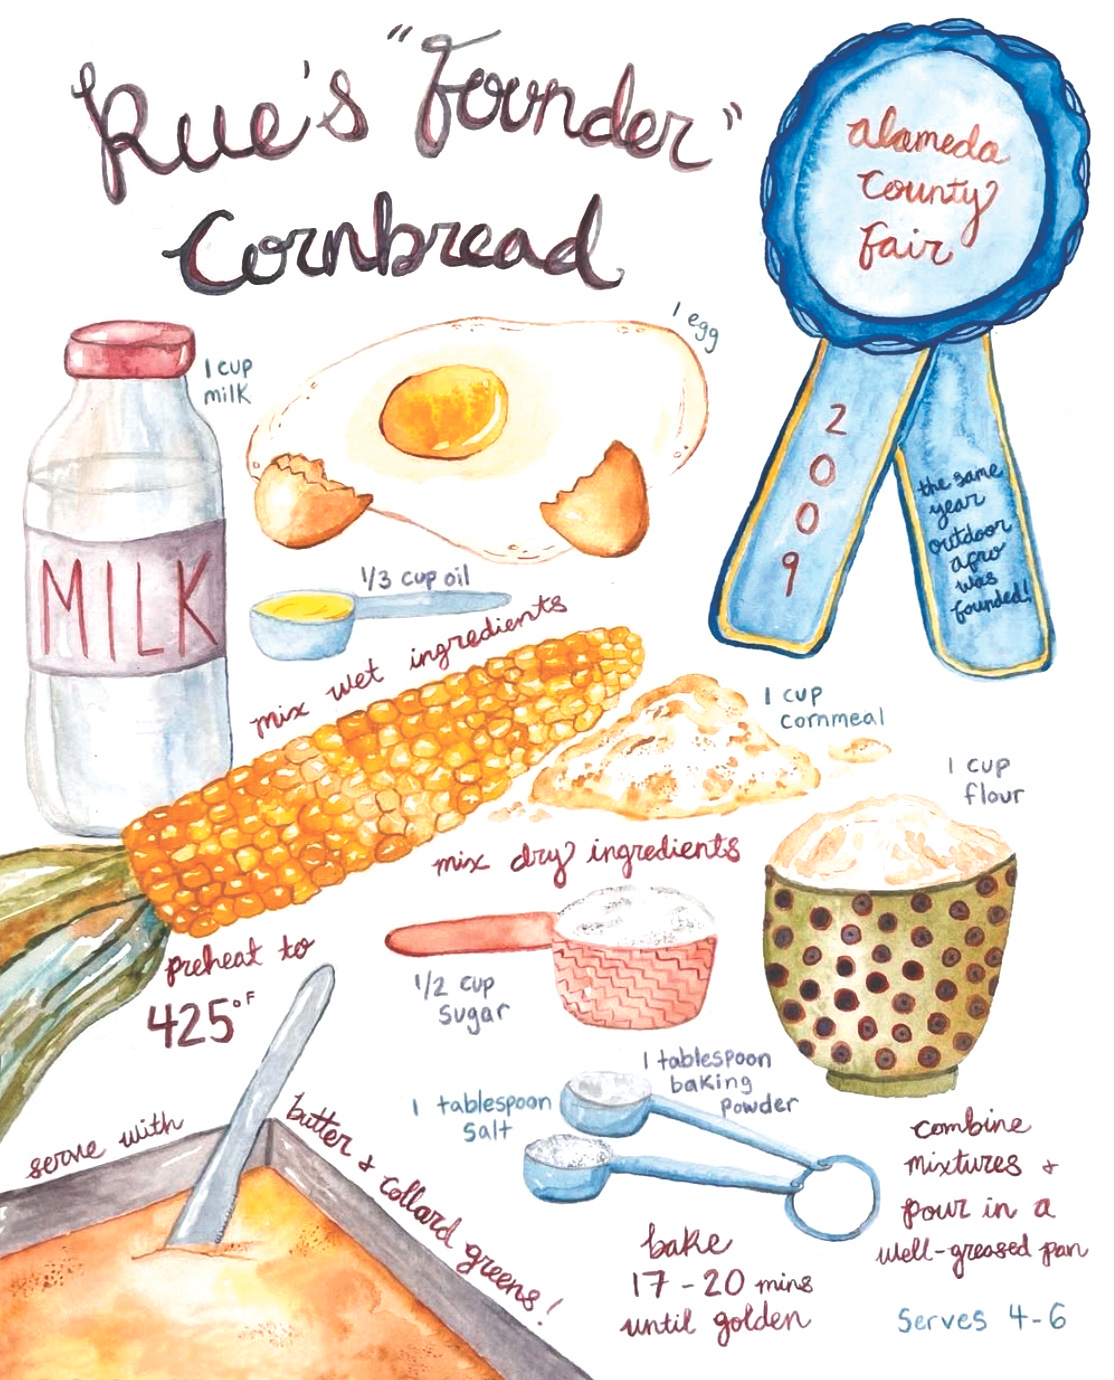 Rue's "Founder"
Cornbread
alameda
County
Fair
2009
the same
year
outdoor
afro
was
founded!
1 cup
milk
1 egg
MILK
1/3 cup oil
mix wet ingredients
1 cup
cornmeal
1 cup
flour
mix dry ingredients
preheat to
425°F
1/2 cup
sugar
1 tablespoon
baking
powder
1 tablespoon
salt
combine
mixtures +
pour in a
well-greased pan
serve with
butter + collard greens!
bake
17-20 mins
until golden
Serves 4-6